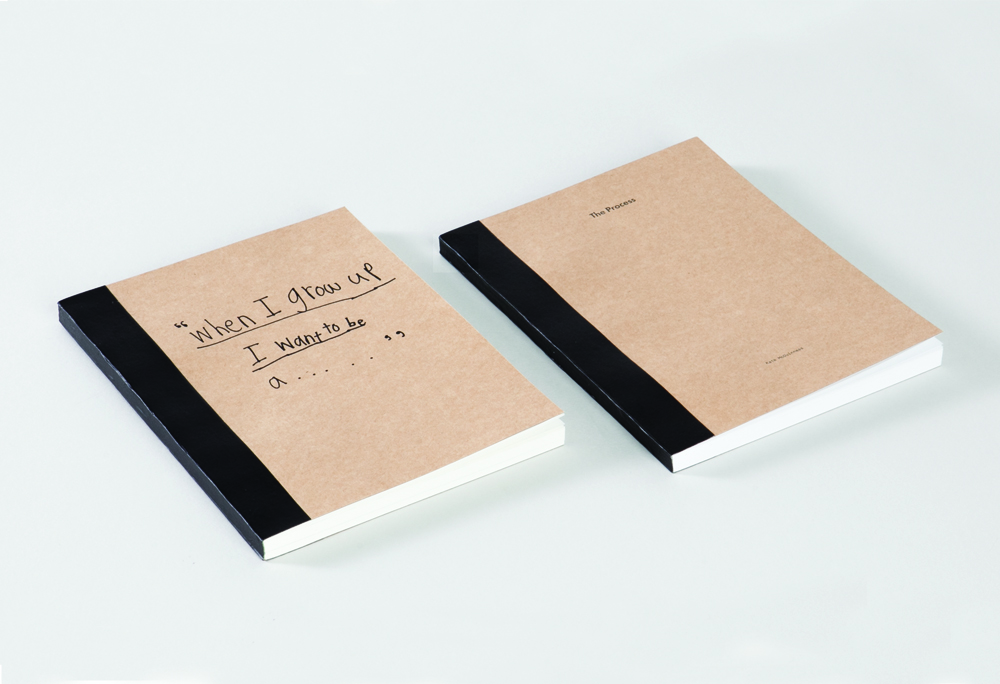 “when I grow up
I want to be
a... . . .”
The Process